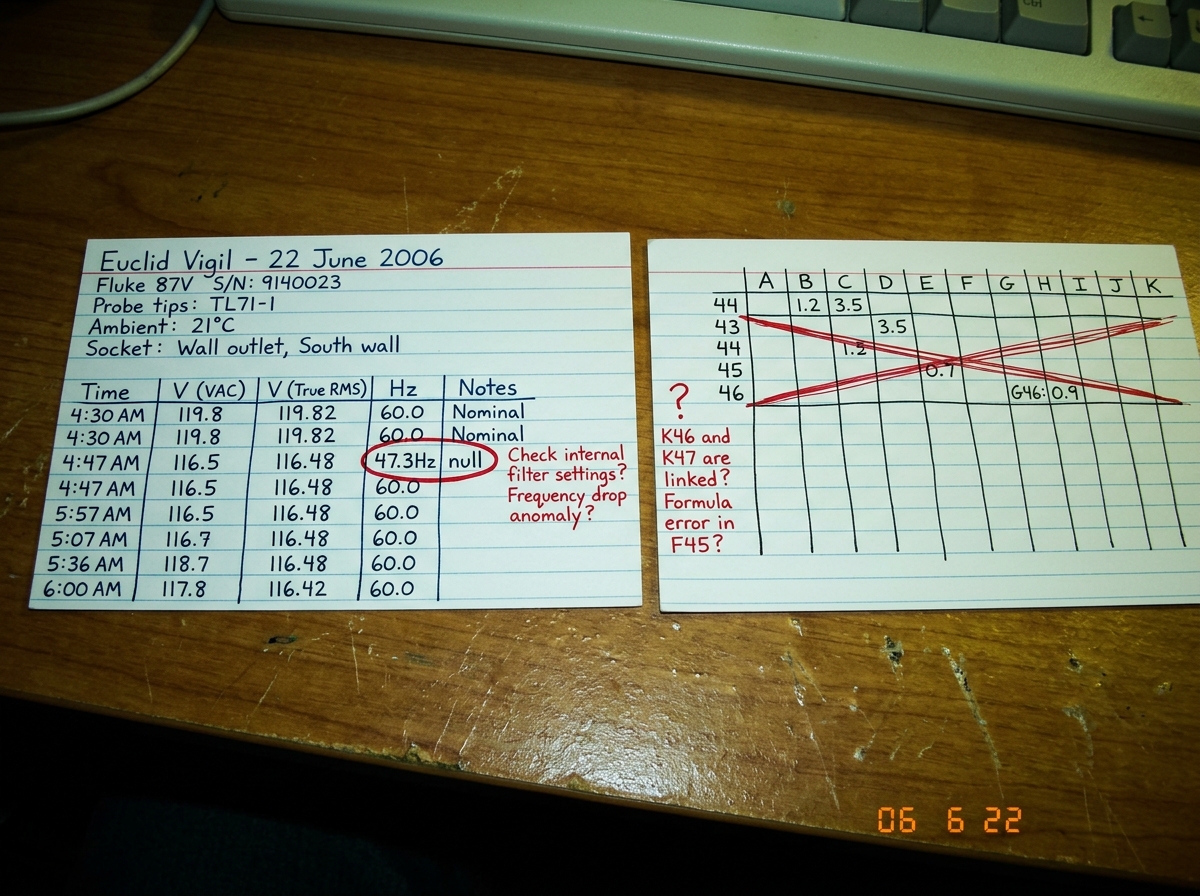 Euclid Vigil - 22 June 2006
Fluke 87V S/N: 9140023
Probe tips: TL71-1
Ambient: 21°C
Socket: Wall outlet, South wall
Time V (VAC) V (True RMS) Hz Notes
4:30 AM 119.8 119.82 60.0 Nominal
4:30 AM 119.8 119.82 60.0 Nominal
4:47 AM 116.5 116.48 47.3Hz null
4:47 AM 116.5 116.48 60.0
5:57 AM 116.5 116.48 60.0
5:07 AM 116.7 116.48 60.0
5:36 AM 118.7 116.48 60.0
6:00 AM 117.8 116.42 60.0
Check internal
filter settings?
Frequency drop
anomaly?
A B C D E F G H I J K
44 1.2 3.5
43 3.5
44 1.2
45 0.7
46 G46: 0.9
?
K46 and
K47 are
linked?
Formula
error in
F45?
06 6 22